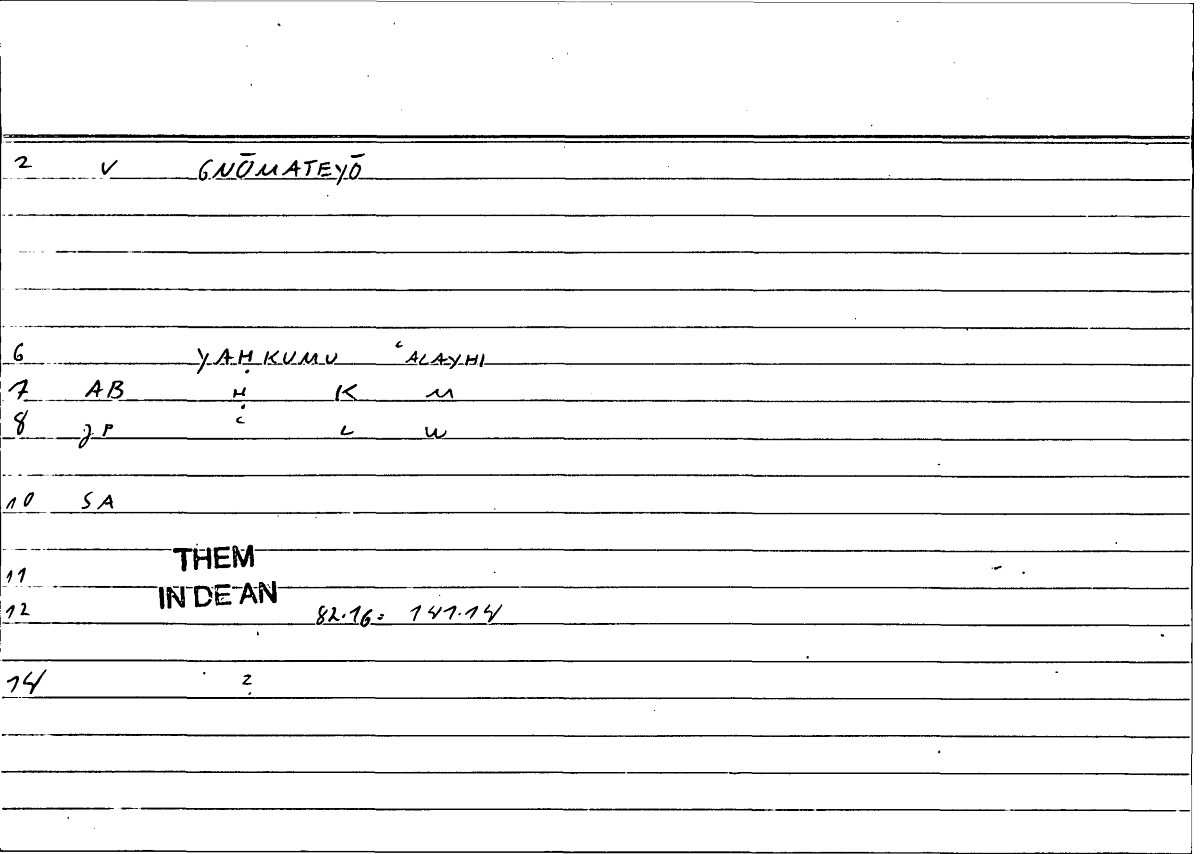 2 V GNŌMATEYŌ
6 YAḤKUMU ʿALAYHI
7 AB Ḥ K M
8 JP C L W
10 SA
THEM
11
IN DE AN
12 82.16= 141.14
14 2